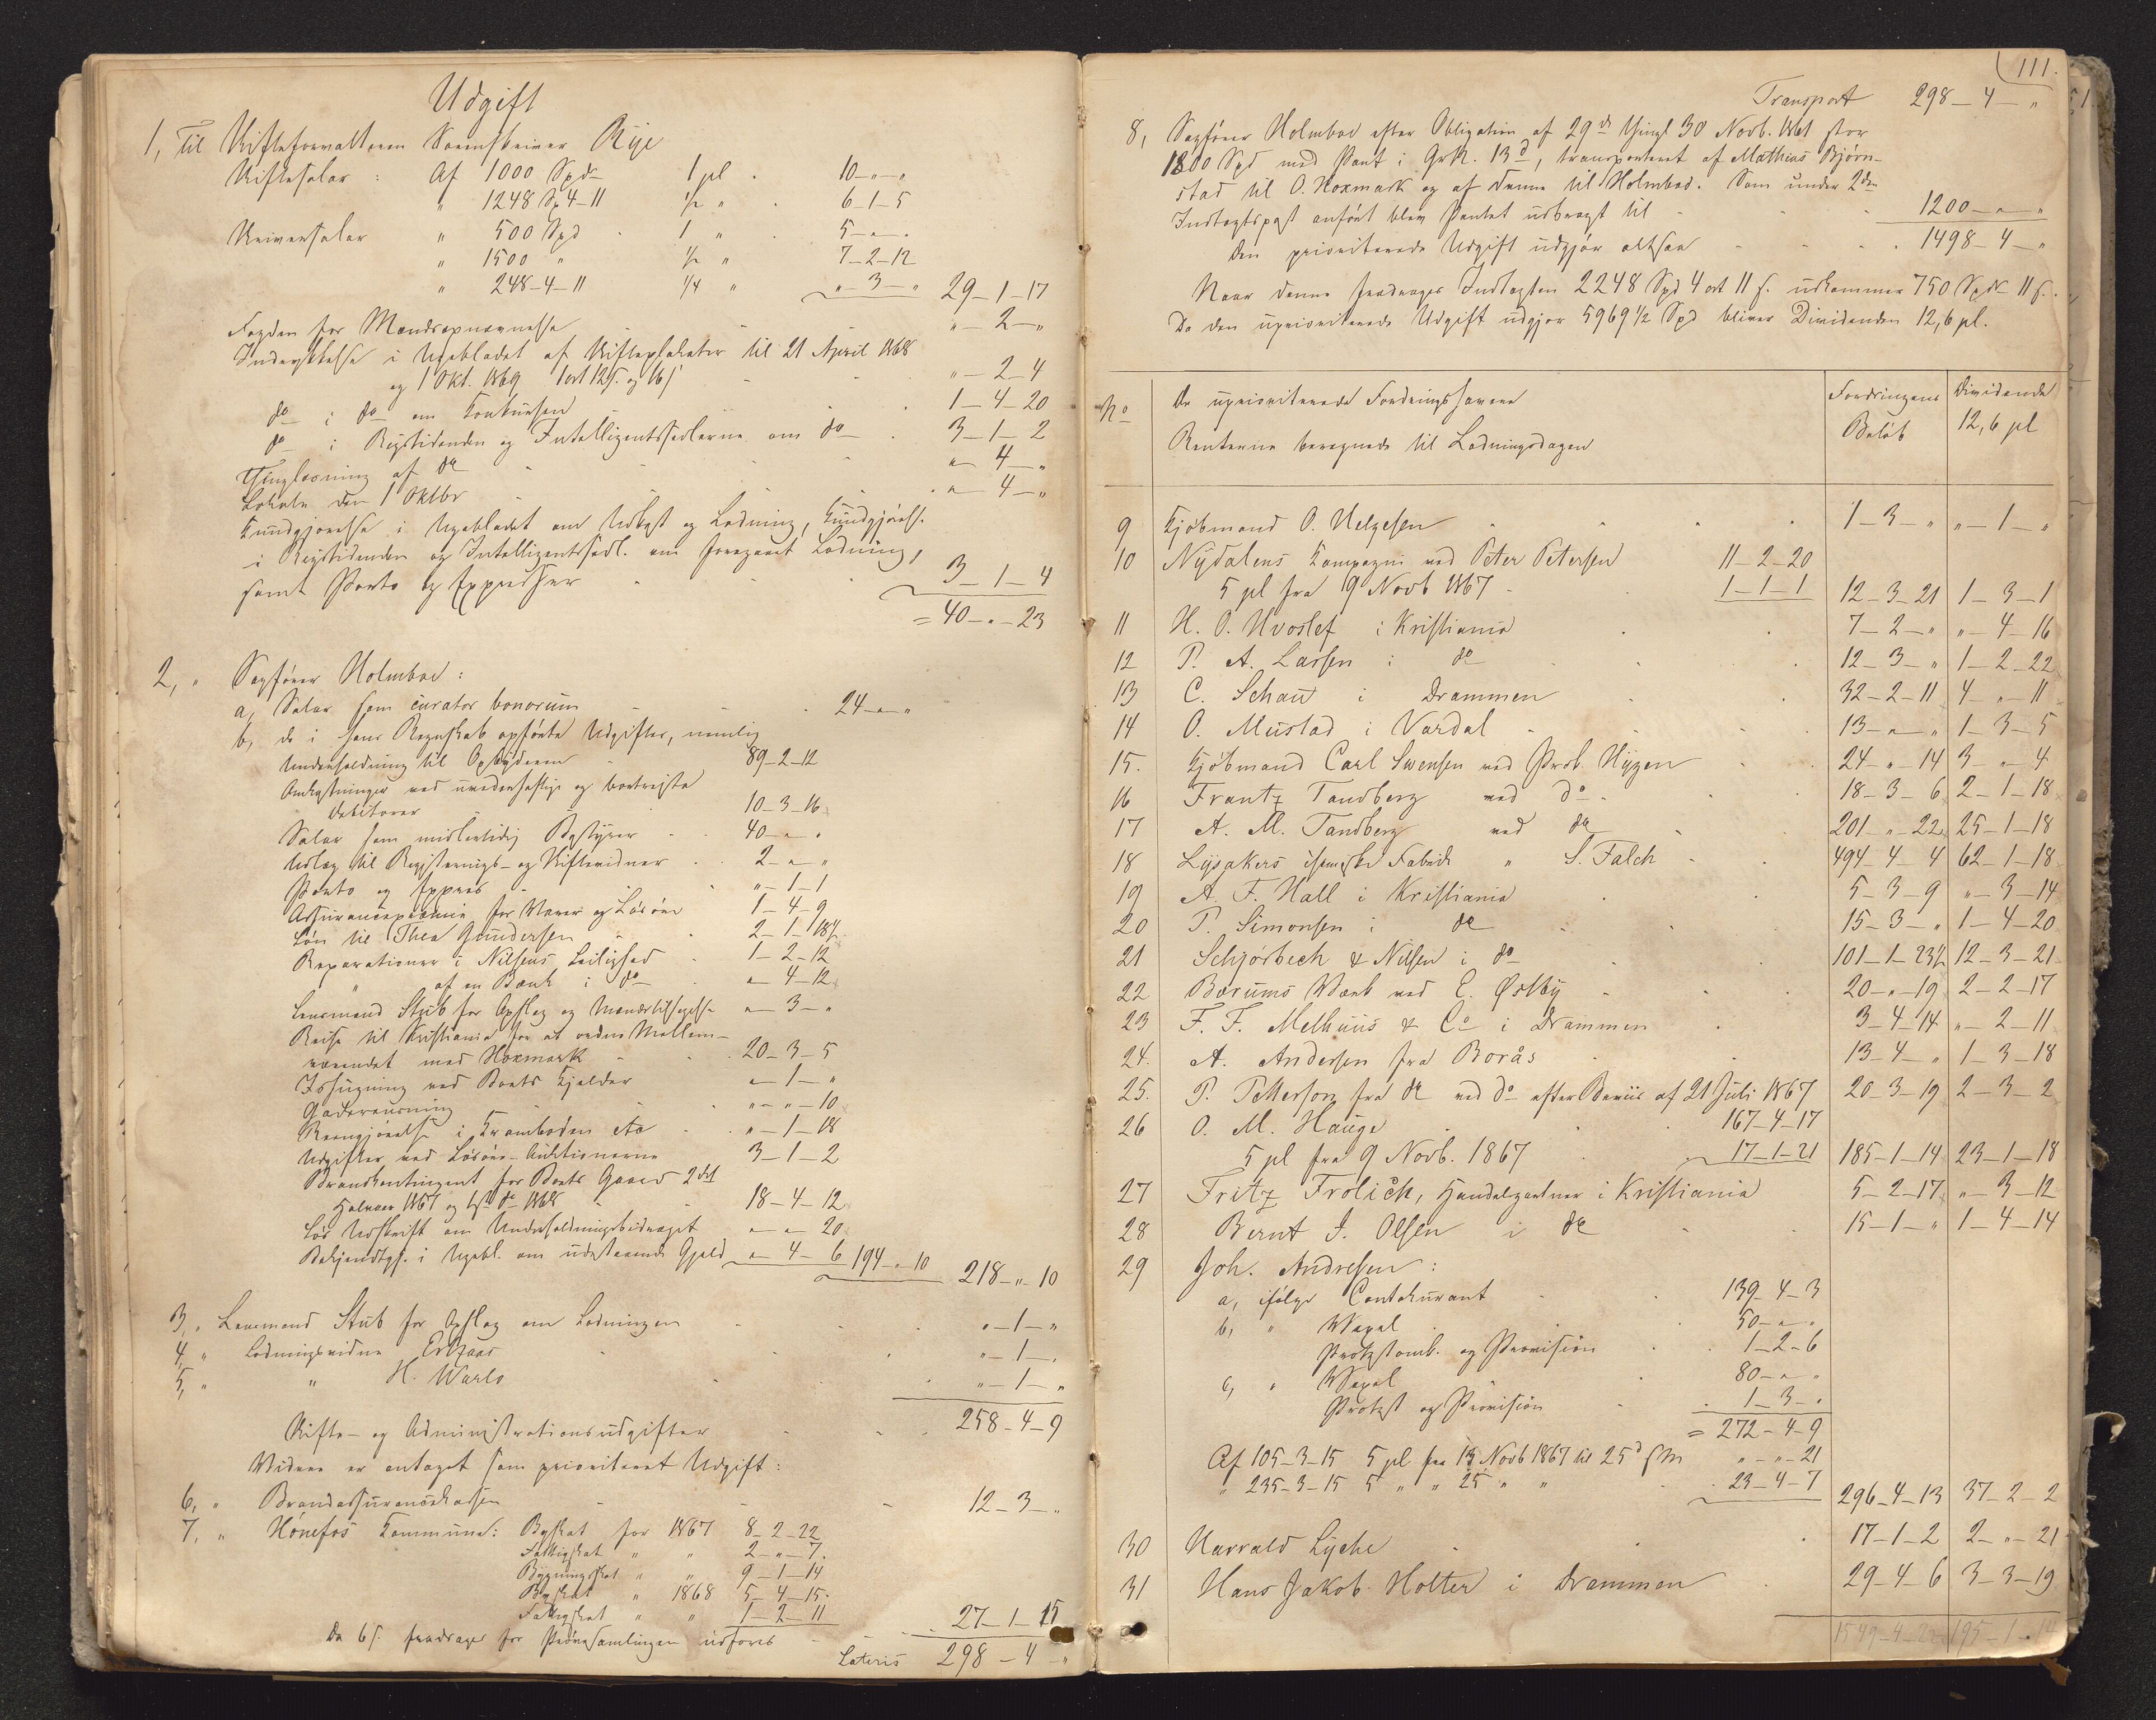 Udgift
1, Til Skifteforvalteren Sorenskriver Rye
Skiftesalar : Af 1000 Spd 1 pCt . 10-"-"
" 1248 Sp 4-11 1/2 " . 6-1-5
Universalar " 500 Spd . 1 " . 5-"-"
" 1500 " 1/2 " 7-2-12
" 248-4-11 1/4 " "-3-" 29-1-17
Fogden for Mændsopnævnelse "-2-"
Inderykkelse i Ugebladet af Skifteplakater til 21 April 1868
og 1 Okt. 1869 1 ort 12 s. og 16 s "-2-4
do i do om Konkursen 1-4-20
do i Rigstidenden og Intelligentssedlerne om do 3-1-2
Thinglæsning af do "-4-"
Lokale den 1 Oktbr "-4-"
Kundgjørelse i Ugebladet om Udlæg og Lodning, Kundgjørelse
i Rigstidenden og Intelligentssedl. om foregaaet Lodning,
samt Porto og Expresser 3-1-4
= 40-"-23
2, " Sagfører Holmboe :
a, Salar som curator bonorum 24-"-"
b, de i hans Regnskab opførte Udgifter, nemlig
Underholdning til Opbyderen 89-2-12
Omkostninger ved uvederhæftige og bortreiste
Debitorer 10-3-16
Salar som midlertidig Bestyrer 40-"-"
Udlæg til Registrerings- og Skiftevidner 2-"-"
Porto og Expres "-1-1
Assurancepræmie for Varer og Løsøre 1-4-9
Løn til Thea Gundersen 2-1-18½
Reparationer i Nilsens Leilighed 1-2-12
" af en Bænk i do "-4-12
Lensmand Stub for Opslag og Mændstilsigelse "-3-"
Reise til Kristiania for at ordne Mellem-
værendet med Hoxmark 20-3-5
Ishugning ved Boets Kjelder "-1-"
Gaderensning "-"-10
Rengjørelse i Kramboden etc "-1-18
Udgifter ved Løsøre-Auktionerne 3-1-2
Brandkontingent for Boets Gaard 2det
Halvaar 1867 og 1ste do 1868 18-4-12
For Udskrift om Underholdningsbidraget "-"-20
Bekjendtgj. i Ugebl. om udestaaende Gjæld "-4-6 194-"-10 218-"-10
3, " Lensmand Stub for Opslag om Lodningen "-1-"
4, " Lodningsvidne Erkjaas "-1-"
5, " " H. Warlo "-1-"
Skifte- og Administrationsudgifter 258-4-9
Videre er antaget som prioriteret Udgift :
6, " Brandassurancekassen 12-3-"
7, " Hønefos Kommune : Byskat for 1867 8-2-22
Fattigskat " " 2-"-7
Bygningsskat " " 9-1-14
Byskat " 1868 5-4-15
Fattigskat " " 1-2-11
Da 6 s. fradrages for Prøvesamlingen udføres 27-1-15
Lateris 298-4-"
111.
Transport 298-4-"
8, Sagfører Holmboe efter Obligation af 29de thingl 30 Novb. 1861 stor
1800 Spd med Pant i GrR. 13d, transporteret af Mathias Bjørn-
stad til O. Hoxmark og af denne til Holmboe. Som under 2den
Indtægtspost anført blev Pantet udbragt til 1200-"-"
Den prioriterede Udgift udgjør altsaa 1498-4-"
Naar denne fradrages Indtægten 2248 Spd 4 ort 11 s. udkommer 750 Spd " 11 s.
Da den uprioriterede Udgift udgjør 5969½ Spd bliver Dividenden 12,6 pCt.
No De uprioriterede Fordringshavere Fordringens Dividende
Renterne beregnede til Lodningsdagen Beløb 12,6 pCt
9 Kjøbmand O. Helgesen 1-3-" "-1-"
10 Nydalens Kompagni ved Peter Petersen 11-2-20
5 pCt fra 9 Novb 1867 1-1-1 12-3-21 1-3-1
11 H. O. Hvoslef i Kristiania 7-2-" "-4-16
12 P. A. Larsen i do 12-3-" 1-2-22
13 C. Schau i Drammen 32-2-11 4-"-11
14 O. Mustad i Vardal 13-"-" 1-3-5
15. Kjøbmand Carl Svensen ved Prok. Hygen 24-"-14 3-"-4
16 Frantz Tandberg ved do 18-3-6 2-1-18
17 A. M. Tandberg ved do 201-"-22 25-1-18
18 Lysakers chemiske Fabrik " S. Falch 494-4-4 62-1-18
19 A. F. Hall i Kristiania 5-3-9 "-3-14
20 P. Simonsen i do 15-3-" 1-4-20
21 Schjørbech & Nilsen i do 101-1-23½ 12-3-21
22 Bærums Værk ved E. Østby 20-"-19 2-2-17
23 F. F. Melhuus & Co i Drammen 3-4-14 "-2-11
24. A. Andersen fra Borås 13-4-" 1-3-18
25. P. Petterson fra do ved do efter Beviis af 21 Juli 1867 20-3-19 2-3-2
26 O. M. Hauge 167-4-17
5 pCt fra 9 Novb. 1867 17-1-21 185-1-14 23-1-18
27 Fritz Frolich, Handelsgartner i Kristiania 5-2-17 "-3-12
28 Bernt J. Olsen i do 15-1-" 1-4-14
29 Joh. Andresen :
a, ifølge Contokurant 139-4-3
b, " Vexel 50-"-"
Protestomk. og Provision 1-2-6
c, " Vexel 80-"-"
Protest og Provision 1-3-"
= 272-4-9
Af 105-3-15 5 pCt fra 13 Novb 1867 til 25d s M "-"-21
" 235-3-15 5 " " 25 " " 23-4-7 296-4-13 37-2-2
30 Harrald Lyche 17-1-2 2-"-21
31 Hans Jakob Holter i Drammen 29-4-6 3-3-19
1549-4-22 195-1-14